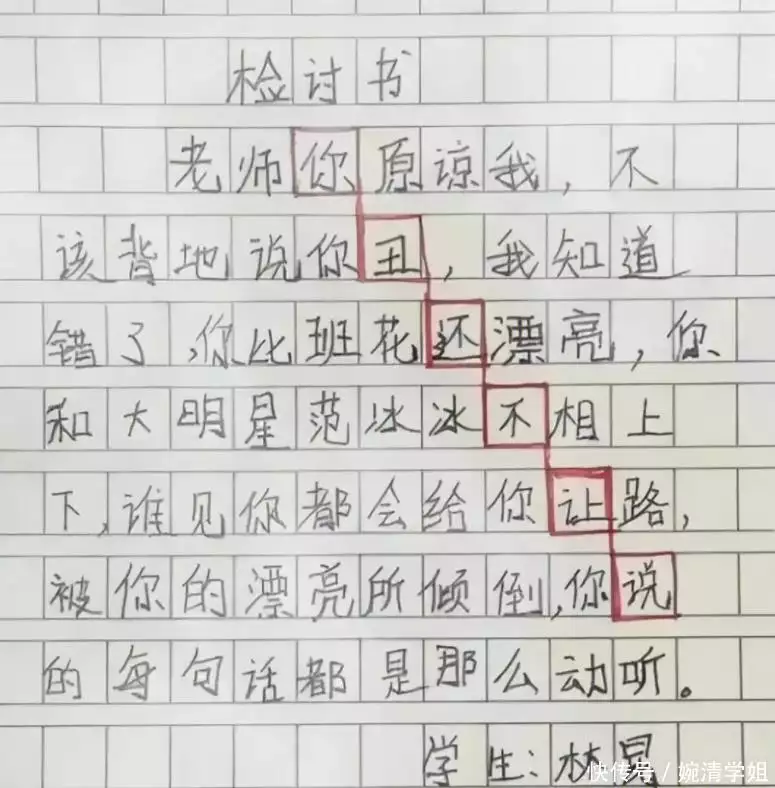 检讨书
老师你原谅我,不
该背地说你丑,我知道
错了,你比班花还漂亮,你
和大明星范冰冰不相上
下,谁见你都会给你让路,
被你的漂亮所倾倒,你说
的每句话都是那么动听。
学生:林
快传号/婉清学姐